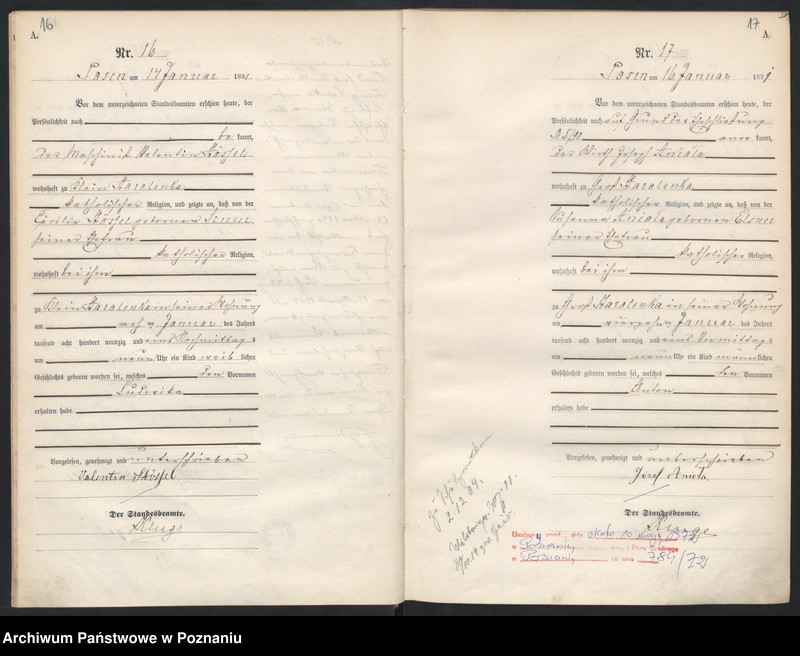 16
A.
Nr. 16
Posen am 14 Januar 1891
Vor dem unterzeichneten Standesbeamten erschien heute, der
Persönlichkeit nach
be kannt,
der Maschinist Valentin Stössel
wohnhaft zu Klein Staralenka
katholischer Religion, und zeigte an, daß von der
Cäcilie Stössel geborenen
seiner Ehefrau
katholischer Religion,
wohnhaft bei ihm
zu Klein Staralenka in seiner Wohnung
am acht ten Januar des Jahres
tausend acht hundert neunzig und eins Nachmittags
um neun Uhr ein Kind weib lichen
Geschlechts geboren worden sei, welches den Vornamen
Ludovika
erhalten habe.
Vorgelesen, genehmigt und unterschrieben
Valentin Stössel
Der Standesbeamte.
Kluge
17
A.
Nr. 17
Posen am 16 Januar 1891
Vor dem unterzeichneten Standesbeamten erschien heute, der
Persönlichkeit nach auf Grund der
aner kannt,
der Wirth Joseph Aniola
wohnhaft zu Groß Staralenka
katholischer Religion, und zeigte an, daß von der
Susanna Aniola geborenen Elsner
seiner Ehefrau
katholischer Religion,
wohnhaft bei ihm
zu Groß Staralenka in seiner Wohnung
am vierzehn ten Januar des Jahres
tausend acht hundert neunzig und eins Vormittags
um neun Uhr ein Kind männ lichen
Geschlechts geboren worden sei, welches den Vornamen
Anton
erhalten habe.
Vorgelesen, genehmigt und unterschrieben
Józef Aniola
Der Standesbeamte.
Kluge
2.12.09.
w Poznaniu
w Poznaniu 784/72
Archiwum Państwowe w Poznaniu